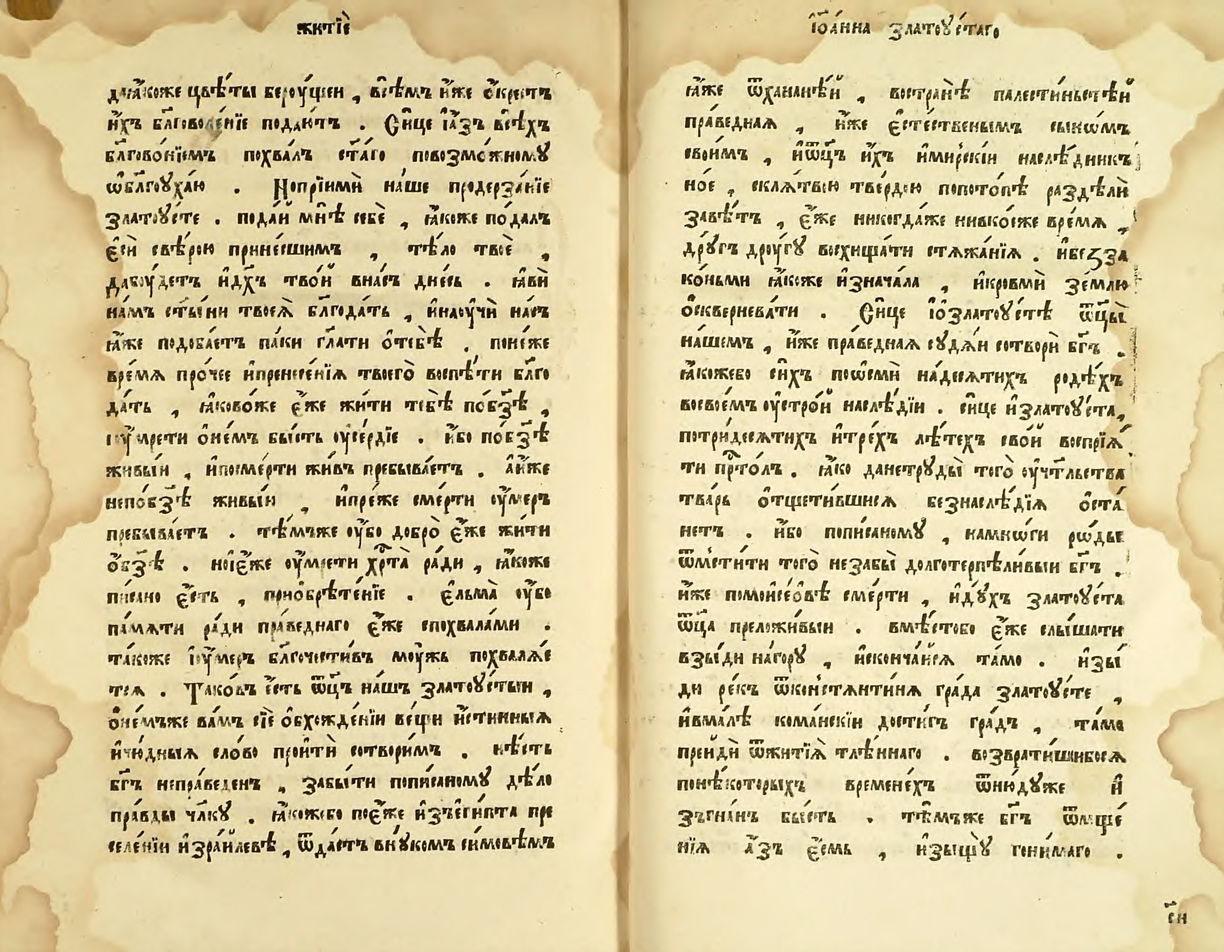 житїѐ
да ꙗ҆́коже цвѣ́ты берꙋ́щеи , всѣ́мъ и҆̀же ѻ҆́крестъ
и҆́хъ бл҃говоле́нїе подаю́тъ . Си́це і҆а҆́зъ всѣ́хъ
бл҃гово́нїемъ похва́лъ ст҃а́го повозмо́жномꙋ
ѡ҆бл҃гоꙋха́ю . Нопрїими́ на́ше продерза́нїе
златоꙋ́сте . пода́й мнѣ̀ себѐ , ꙗ҆́коже по́далъ
є҆сѝ свѣ́рою прине́сшимъ , тѣ́ло твоѐ ,
дабꙋ́детъ и҆дх҃ъ тво́й вна́съ дне́сь . ꙗ҆вѝ
на́мъ ст҃ы́ни твоеѧ̀ бл҃года́ть , и҆наꙋчѝ на́съ
ꙗ҆́же подоба́етъ па́ки гл҃ати ѻ҆тебѣ̀ . поне́же
время про́чее и҆пренесе́нїѧ твоего̀ воспѣ́ти бл҃го
да́ть , ꙗ҆ково́же є҆́же жи́ти тебѣ̀ побз҃ѣ ,
і҆ꙋ҆мре́ти ѻ҆не́мъ бы́сть ᲂу҆се́рдїе . и҆́бо побз҃ѣ
живы́и , и҆посме́рти жи́въ пребыва́етъ . а҆и҆́же
непобз҃ѣ живы́и , и҆пре́же сме́рти ᲂу҆́меръ
пребыва́етъ . тѣ́мъже ᲂу҆́бо добро̀ є҆́же жи́ти
ѻ҆бз҃ѣ . ноі҆є҆́же ᲂу҆мре́ти хрⷭ҇та̀ ра́ди , ꙗ҆́коже
пи́сано є҆́сть , приѡбрѣте́нїе . є҆льма̀ ᲂу҆́бо
па́мѧти ра́ди пра́веднаго є҆́же спохвала́ми .
та́коже і҆ꙋ҆́меръ бл҃гочести́въ мꙋ́жь похвалѧ́е
тсѧ . Тако́въ є҆́сть ѿц҃ъ на́шъ златоꙋ́стыи ,
ѻ҆не́мъже ва́мъ сїѐ ѻ҆бхожде́нїи ве́щи и҆́стинныѧ
и҆чю́дныѧ сло́во про́йти сотвори́мъ . нѣ́сть
бг҃ъ непра́веденъ , забы́ти пописа́номꙋ дѣ́ло
пра́вды чл҃кꙋ . ꙗ҆́кожебо пое҆́же и҆зъе҆ги́пта пре
селе́нїи и҆зра́илевѣ , ѿда́стъ внꙋ́комъ си́мовѣмъ
і҆ѡа́нна златоꙋ́стаго
ꙗ҆́же ѿханане́й , востранѣ̀ палести́ньстѣй
пра́веднаѧ , и҆́же є҆сте́ственымъ сынѡ́мъ
свои́мъ , и҆ѿц҃ъ и҆́хъ и҆ми́рскїи наслѣ́дникъ
но́е , склѧ́твою тве́рдою попото́пѣ раздѣлѝ
завѣ́тъ , є҆́же никогда́же нивкое́же вре́мѧ ,
дрꙋ́гъ дрꙋ́гꙋ восхища́ти стѧжа́нїѧ . и҆безза
ко́ньми ꙗ҆́коже и҆знача́ла , и҆кровмѝ зе́млю
ѻ҆сквернева́ти . Си́це і҆ѻ҆златоꙋ́стѣ ѿц҃ы̀
на́шемъ , и҆́же пра́веднаѧ сꙋдѧ́и сотворѝ бг҃ъ .
ꙗ҆́кожебо си́хъ поѻ҆смѝ на́десѧтихъ родѣ́хъ
восвое́мъ ᲂу҆стро́й наслѣ́дїи . си́це и҆златоꙋ́ста,
потридесѧ́тихъ и҆тре́хъ лѣ́техъ сво́й воспрїѧ́
ти прⷭ҇то́лъ . ꙗ҆́ко данетрꙋды̀ того̀ ᲂу҆чт҃льства
тва́рь ѻ҆тщети́вшисѧ безнаслѣ́дїѧ ѻ҆ста́
нетъ . и҆́бо пописа́номꙋ , намнѡ́ги рѡ́ды
ѿмсти́ти того̀ незабы̀ долготерпѣли́выи бг҃ъ .
и҆́же помоисе́ѻвѣ сме́рти , и҆дꙋ́хъ златоꙋ́ста
ѿц҃а преложи́выи . вмѣ́стобо є҆́же слы́шати
взы́ди наго́рꙋ , и҆сконча́йсѧ та́мо . и҆зы́
ди ре́къ ѿконстѧнти́нѧ гра́да златоꙋ́сте ,
и҆вма́лѣ кома́нскїи дости́гъ гра́дъ , та́мо
прейдѝ ѿжитїѧ̀ тлѣ́ннаго . возврати́вшибосѧ
понѣ́которыхъ вре́менехъ ѿню́дꙋже и҆
зъгна́нъ бы́сть . тѣ́мъже бг҃ъ ѿмще́
нїѧ а҆́зъ є҆́смь , и҆зыщꙋ̀ гони́маго .
с҃н